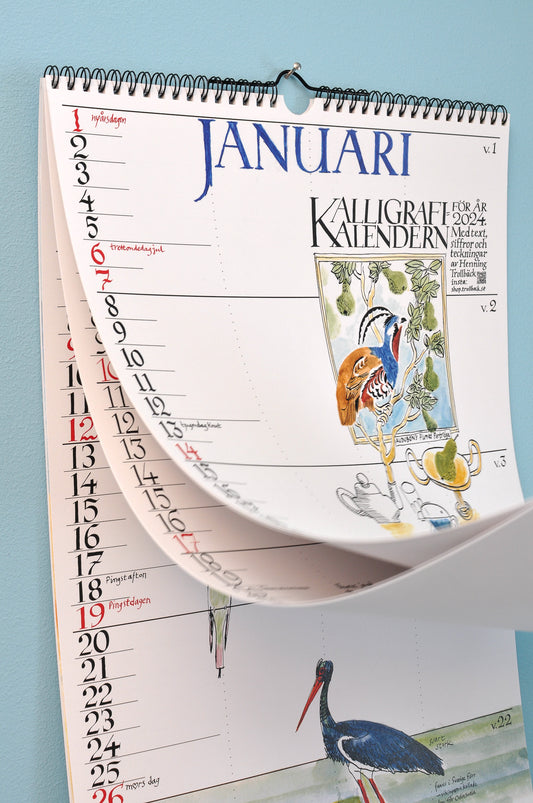 JANUARI
v.1
1 nyårsdagen
2
3
4
5
6 trettondedag jul
7
KALLIGRAFI-
KALENDERN
FÖR ÅR
2024.
Med text,
siffror och
teckningar
av Henning
Trollbäck
insta:
shop.trollback.se
v.2
8
9
10
11
12
13 tjugondag Knut
14
v.3
15
16
17
9
10
11
12
13
14
15
16
17
10
11
12
13
14
15
16
17
18 Pingstafton
19 Pingstdagen
20
21
22
23
24
25
26 mors dag
v.22
svart
stork